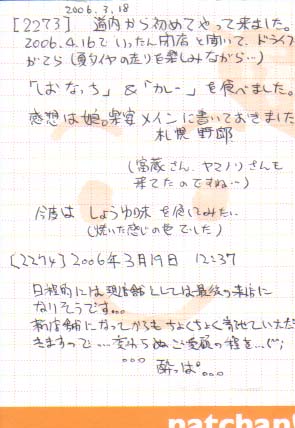 2006.3.18
[2273] 道内から初めてやって来ました。
2006.4.16でいったん閉店と聞いて、ドライブ
がてら(夏タイヤの走りを楽しみながら…)
「しおなっち」&「カレー」を食べました。
感想は娘。楽宴メインに書いておきました
札幌 野郎
(富蔵さん、ヤマノリさんも
来てたのですね…)
今度は しょうゆ味 を食してみたい
(焼いた感じの色でした)
[2274] 2006年3月19日 12:37
日程的には現店舗としては最後の来店に
なりそうです…
新店舗になってからもちょくちょく寄せていただ
きますので…変わらぬご愛顧の程を…(^;
… 酔っぱ°…
patchan